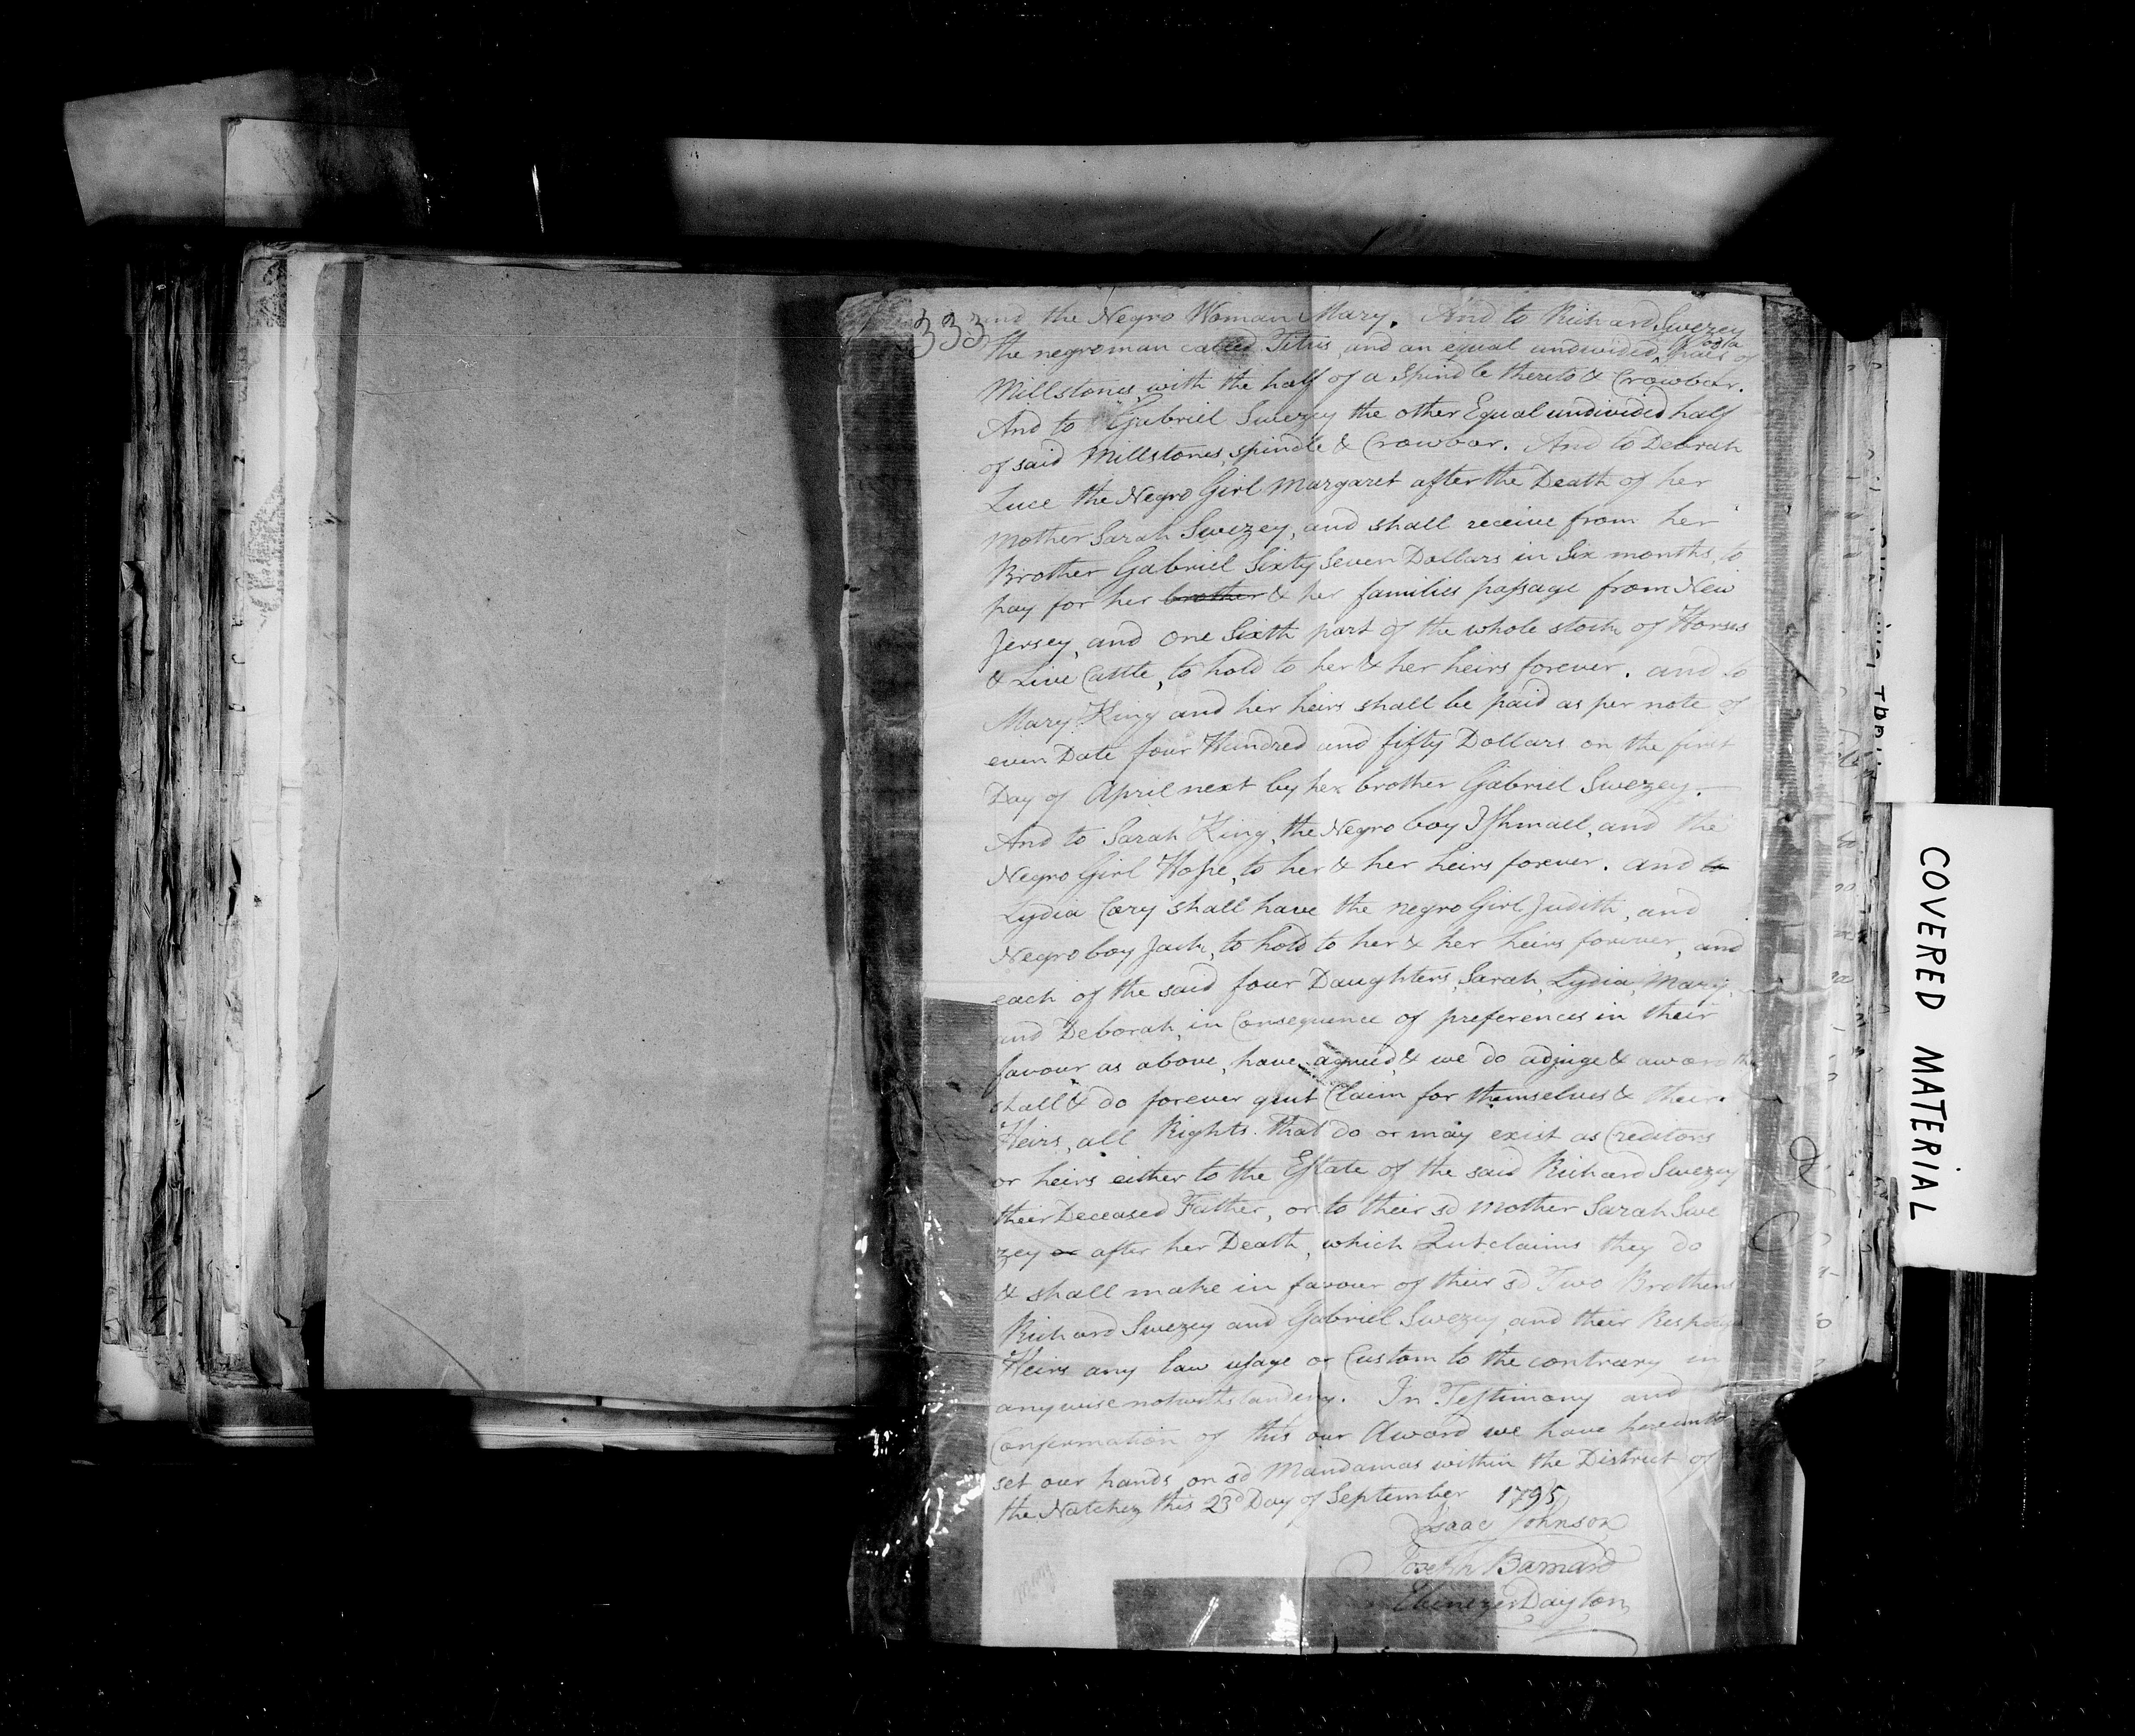 333
and the Negro Woman Mary. And to Richard Swezey
the negro man called Titus, and an equal undivided half of a pair of
Millstones, with the half of a Spindle thereto & Crowbar.
And to Gabriel Swezey the other Equal undivided half
of said Millstones, spindle & Crowbar. And to Debrah
Luce the Negro Girl Margaret after the Death of her
Mother Sarah Swezey, and shall receive from her
Brother Gabriel Sixty Seven Dollars in Six months, to
pay for her brother & her families passage from New
Jersey, and one Sixth part of the whole stock of Horses
& Live Cattle, to hold to her & her heirs forever. and to
Mary King and her heirs shall be paid as per note of
even Date four Hundred and fifty Dollars on the first
Day of April next by her brother Gabriel Swezey.
And to Sarah King, the Negro boy Ishmael, and the
Negro Girl Hope, to her & her heirs forever. and to
Lydia Cory shall have the negro Girl Judith, and
Negro boy Jack, to hold to her & her heirs forever, and
each of the said four Daughters, Sarah, Lydia, Mary,
and Deborah, in Consequence of preferences in their
favour as above, have agreed & we do adjuge & award
shall & do forever quit Claim for themselves & their
Heirs, all Rights that do or may exist as Creditors
or heirs either to the Estate of the said Richard Swezey
their Deceased Father, or to their sd Mother Sarah Swe
zey or after her Death, which Quitclaims they do
& shall make in favour of their sd Two Brothers
Richard Swezey and Gabriel Swezey, and their
Heirs any law usage or Custom to the contrary in
any wise notwithstanding. In Testimony and
Confermation of this our Award we have hereunto
set our hands on sd Mandamas within the District of
the Natchez this 23d Day of September 1795
Isaac Johnson
Joseph Barnard
Ebenezer Dayton
COVERED MATERIAL